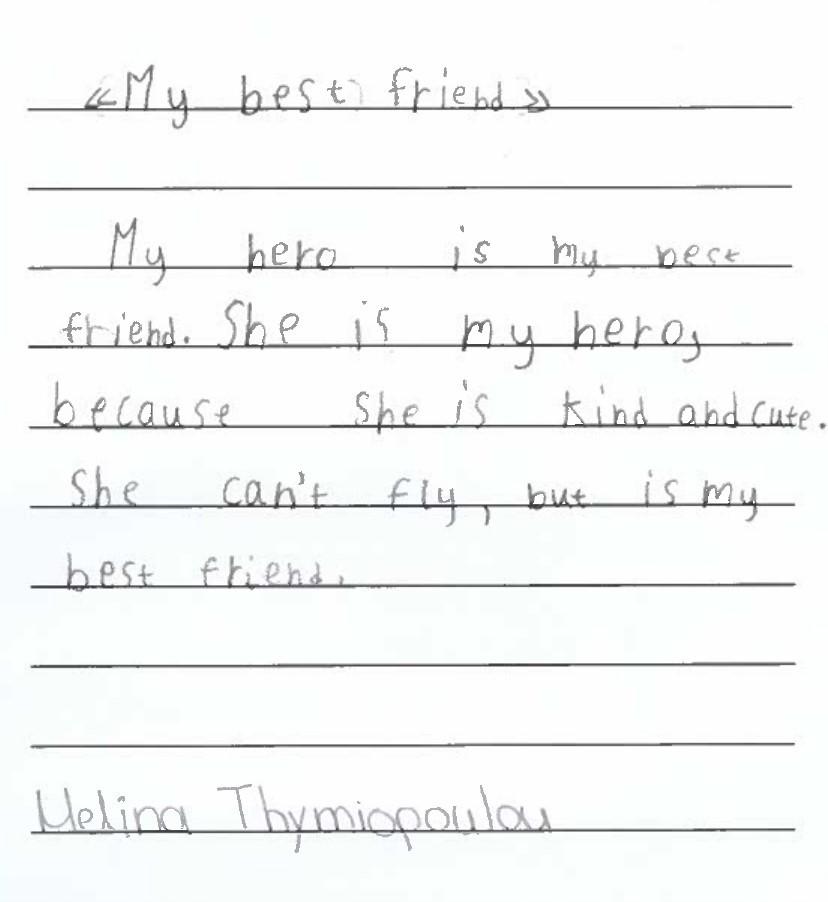 «My best friend»
My hero is my best
friend. She is my hero,
because she is kind and cute.
She can't fly, but is my
best friend.
Melina Thymiopoulou